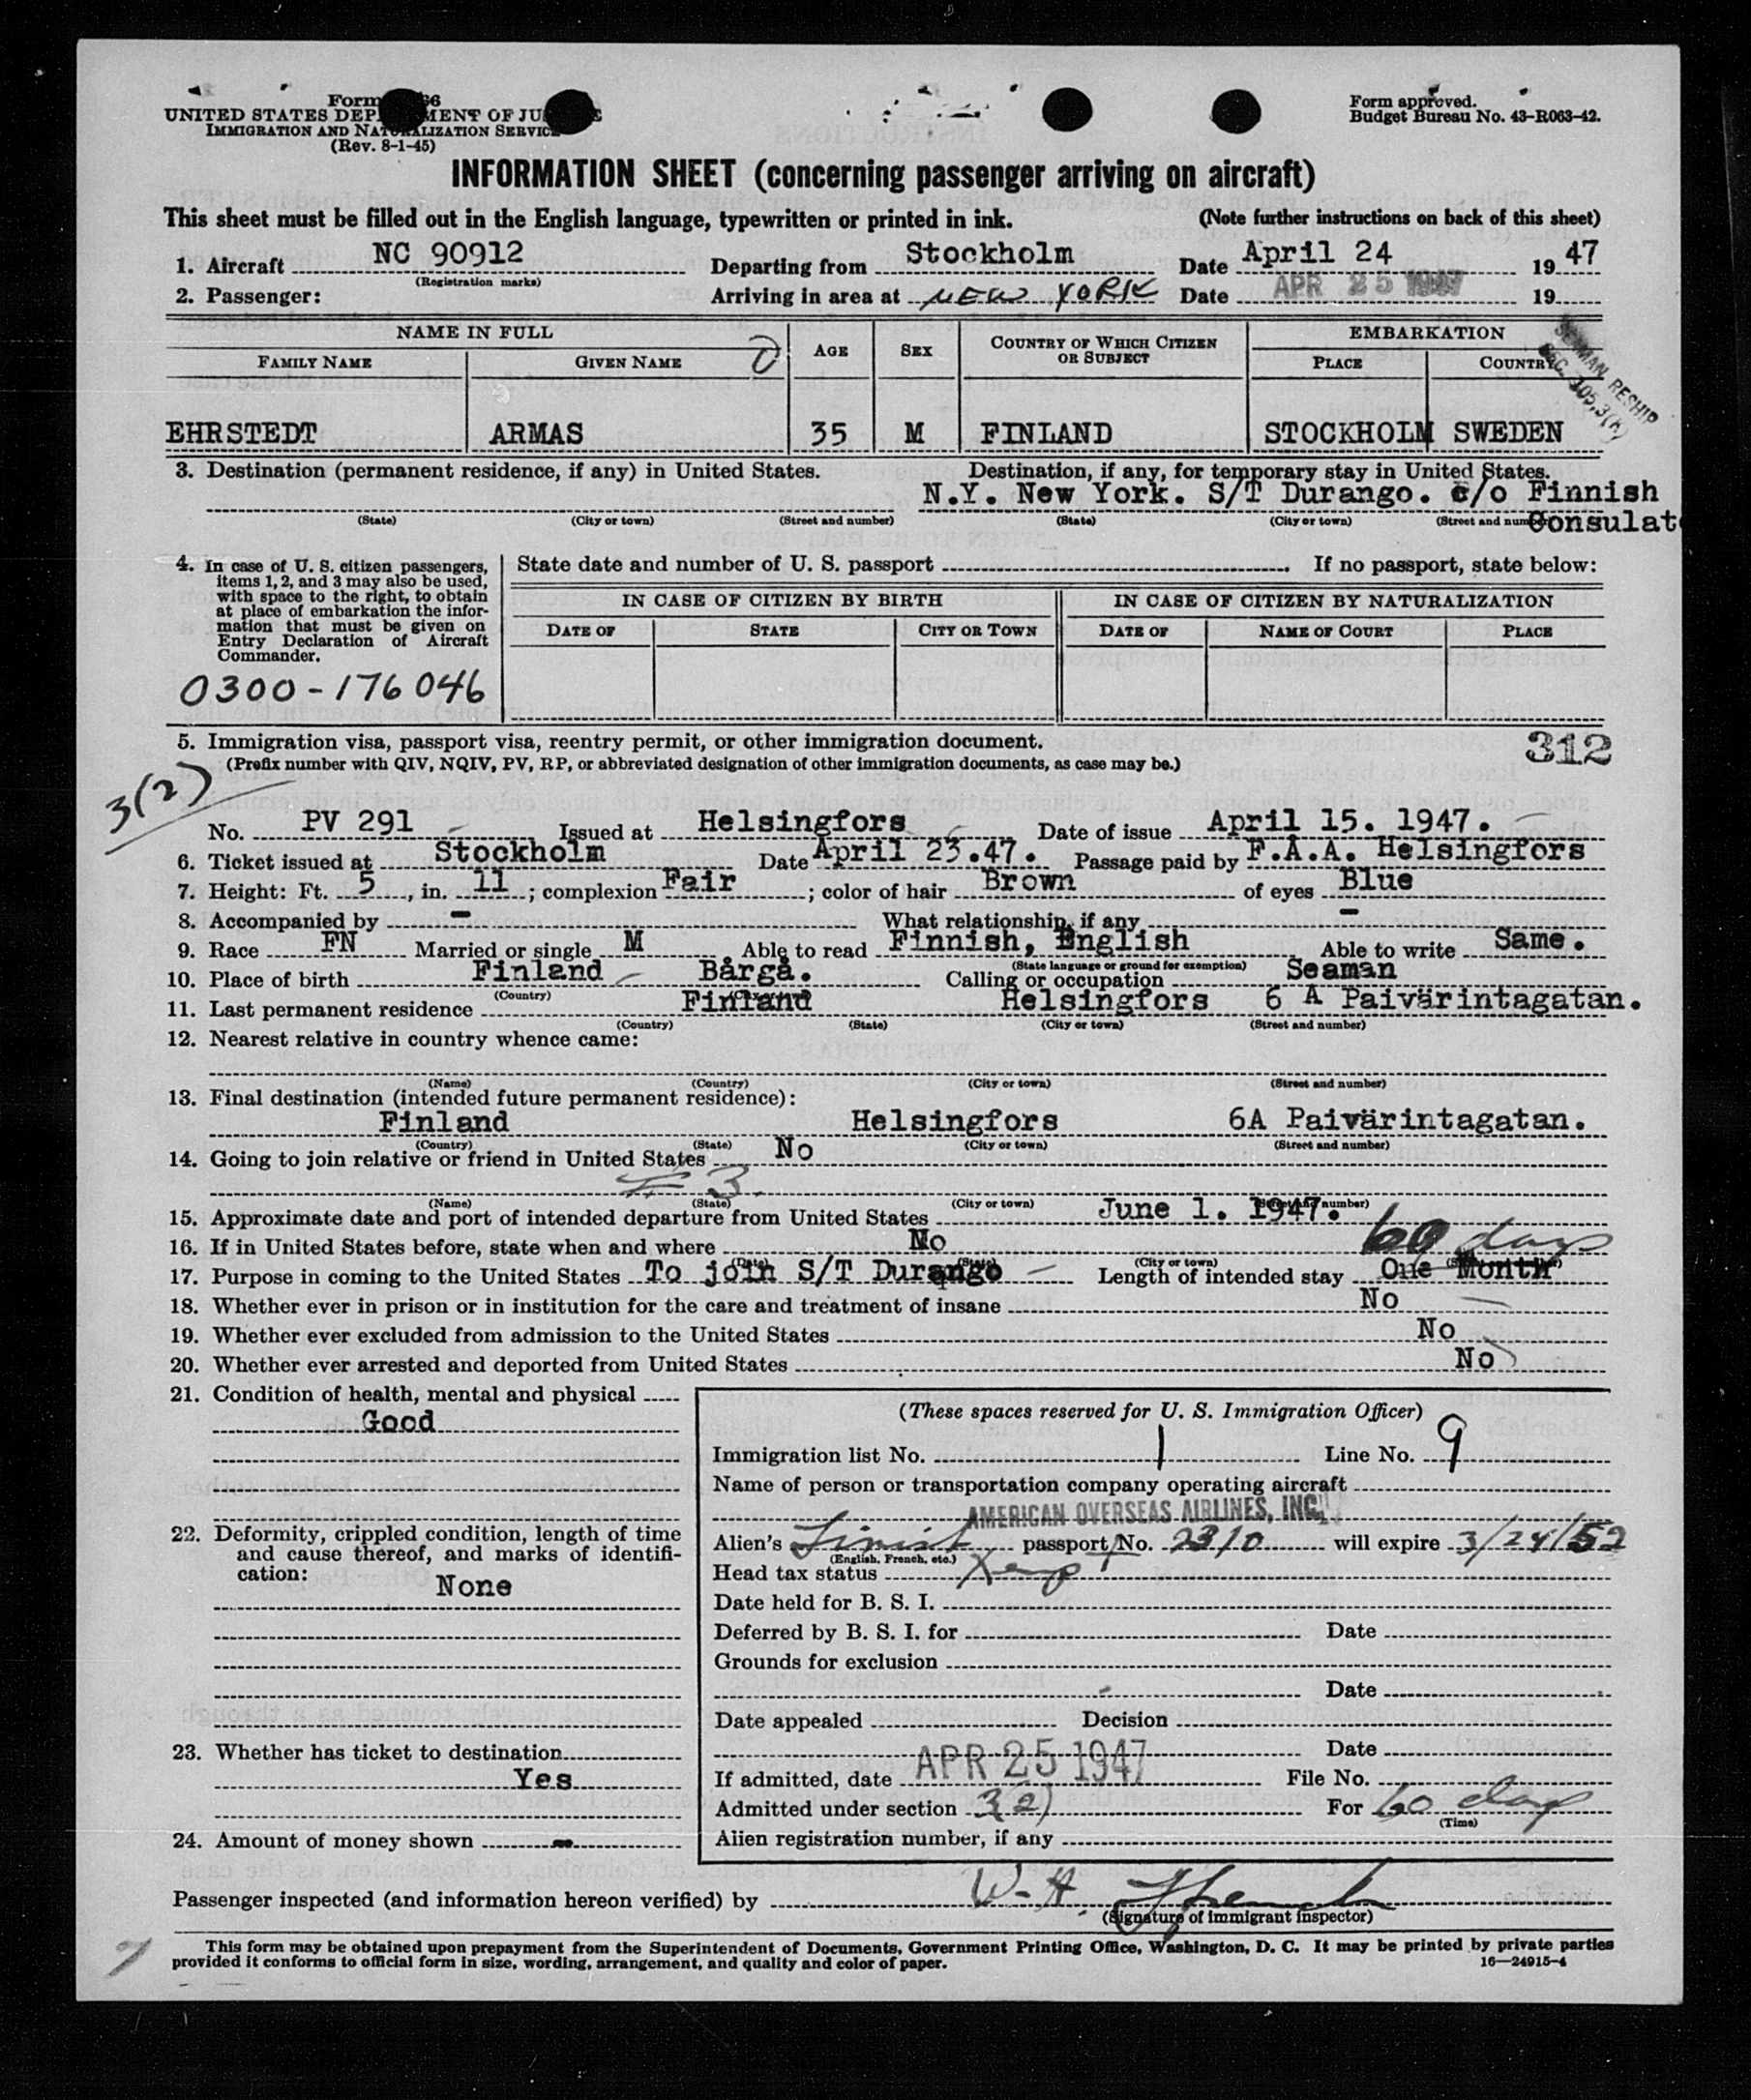 Form 66
UNITED STATES DEP MENT OF JU E
IMMIGRATION AND NATURALIZATION SERVICE
(Rev. 8-1-45)
Form approved.
Budget Bureau No. 43-R063-42.
INFORMATION SHEET (concerning passenger arriving on aircraft)
This sheet must be filled out in the English language, typewritten or printed in ink. (Note further instructions on back of this sheet)
1. Aircraft NC 90912 Departing from Stockholm Date April 24 1947
(Registration marks)
2. Passenger: Arriving in area at NEW YORK Date APR 25 1947 19
NAME IN FULL AGE SEX COUNTRY OF WHICH CITIZEN OR SUBJECT EMBARKATION
FAMILY NAME GIVEN NAME PLACE COUNTRY
SEAMAN RESHIP
SEC. 105.3(k)
EHRSTEDT ARMAS 35 M FINLAND STOCKHOLM SWEDEN
3. Destination (permanent residence, if any) in United States. Destination, if any, for temporary stay in United States.
N.Y. New York. S/T Durango. c/o Finnish
Consulat
(State) (City or town) (Street and number) (State) (City or town) (Street and number)
4. In case of U. S. citizen passengers, items 1, 2, and 3 may also be used, with space to the right, to obtain at place of embarkation the information that must be given on Entry Declaration of Aircraft Commander.
State date and number of U. S. passport If no passport, state below:
IN CASE OF CITIZEN BY BIRTH IN CASE OF CITIZEN BY NATURALIZATION
DATE OF STATE CITY OR TOWN DATE OF NAME OF COURT PLACE
0300-176046
5. Immigration visa, passport visa, reentry permit, or other immigration document. 312
(Prefix number with QIV, NQIV, PV, RP, or abbreviated designation of other immigration documents, as case may be.)
3(2)
No. PV 291 Issued at Helsingfors Date of issue April 15. 1947.
6. Ticket issued at Stockholm Date April 23.47. Passage paid by F.Å.A. Helsingfors
7. Height: Ft. 5, in. 11; complexion Fair; color of hair Brown of eyes Blue
8. Accompanied by - What relationship, if any -
9. Race FN Married or single M Able to read Finnish, English Able to write Same.
(State language or ground for exemption)
10. Place of birth Finland Bårgå. Calling or occupation Seaman
(Country)
11. Last permanent residence Finland Helsingfors 6 A Paivärintagatan.
(Country) (State) (City or town) (Street and number)
12. Nearest relative in country whence came:
(Name) (Country) (City or town) (Street and number)
13. Final destination (intended future permanent residence):
Finland Helsingfors 6A Paivärintagatan.
(Country) (State) (City or town) (Street and number)
14. Going to join relative or friend in United States No
(Name) (State) (City or town) (Street and number)
15. Approximate date and port of intended departure from United States June 1. 1947.
60 days
16. If in United States before, state when and where No
(Date) (State) (City or town)
17. Purpose in coming to the United States To join S/T Durango Length of intended stay One Month
18. Whether ever in prison or in institution for the care and treatment of insane No
19. Whether ever excluded from admission to the United States No
20. Whether ever arrested and deported from United States No
21. Condition of health, mental and physical
Good
22. Deformity, crippled condition, length of time and cause thereof, and marks of identification:
None
23. Whether has ticket to destination
Yes
24. Amount of money shown -
(These spaces reserved for U. S. Immigration Officer)
Immigration list No. 1 Line No. 9
Name of person or transportation company operating aircraft
AMERICAN OVERSEAS AIRLINES, INC.
Alien's passport No. 2310 will expire 3/24/52
(English, French, etc.)
Head tax status
Date held for B. S. I.
Deferred by B. S. I. for Date
Grounds for exclusion
Date
Date appealed Decision
Date
If admitted, date APR 25 1947 File No.
Admitted under section 3(2) For 60 days
(Time)
Alien registration number, if any
Passenger inspected (and information hereon verified) by W. A.
(Signature of Immigrant Inspector)
This form may be obtained upon prepayment from the Superintendent of Documents, Government Printing Office, Washington, D. C. It may be printed by private parties
provided it conforms to official form in size, wording, arrangement, and quality and color of paper. 16—24915-4